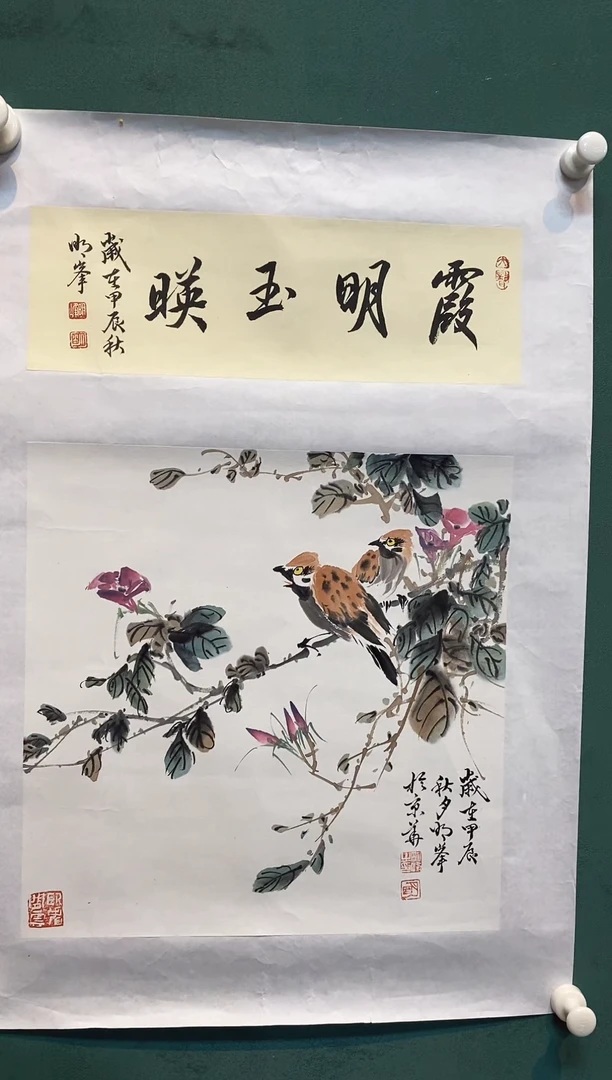 霞明玉暎
歲在甲辰秋
明峯
歲在甲辰
秋夕明峯
於京華